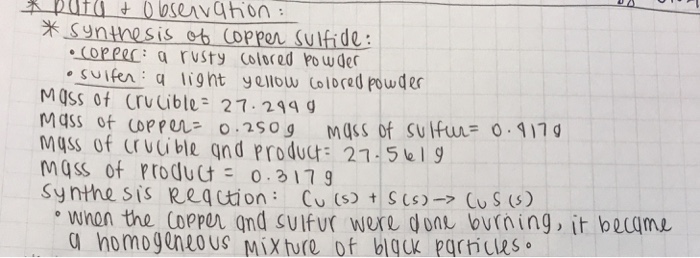 * Data & Observation:
* Synthesis of Copper Sulfide:
• copper: a rusty colored powder
• sulfer: a light yellow colored powder
Mass of crucible = 27.299 g
Mass of copper = 0.250 g mass of sulfur = 0.917 g
Mass of crucible and product = 27.561 g
Mass of product = 0.317 g
Synthesis Reaction: Cu (s) + S (s) → CuS (s)
• when the copper and sulfur were done burning, it became
a homogeneous mixture of black particles.